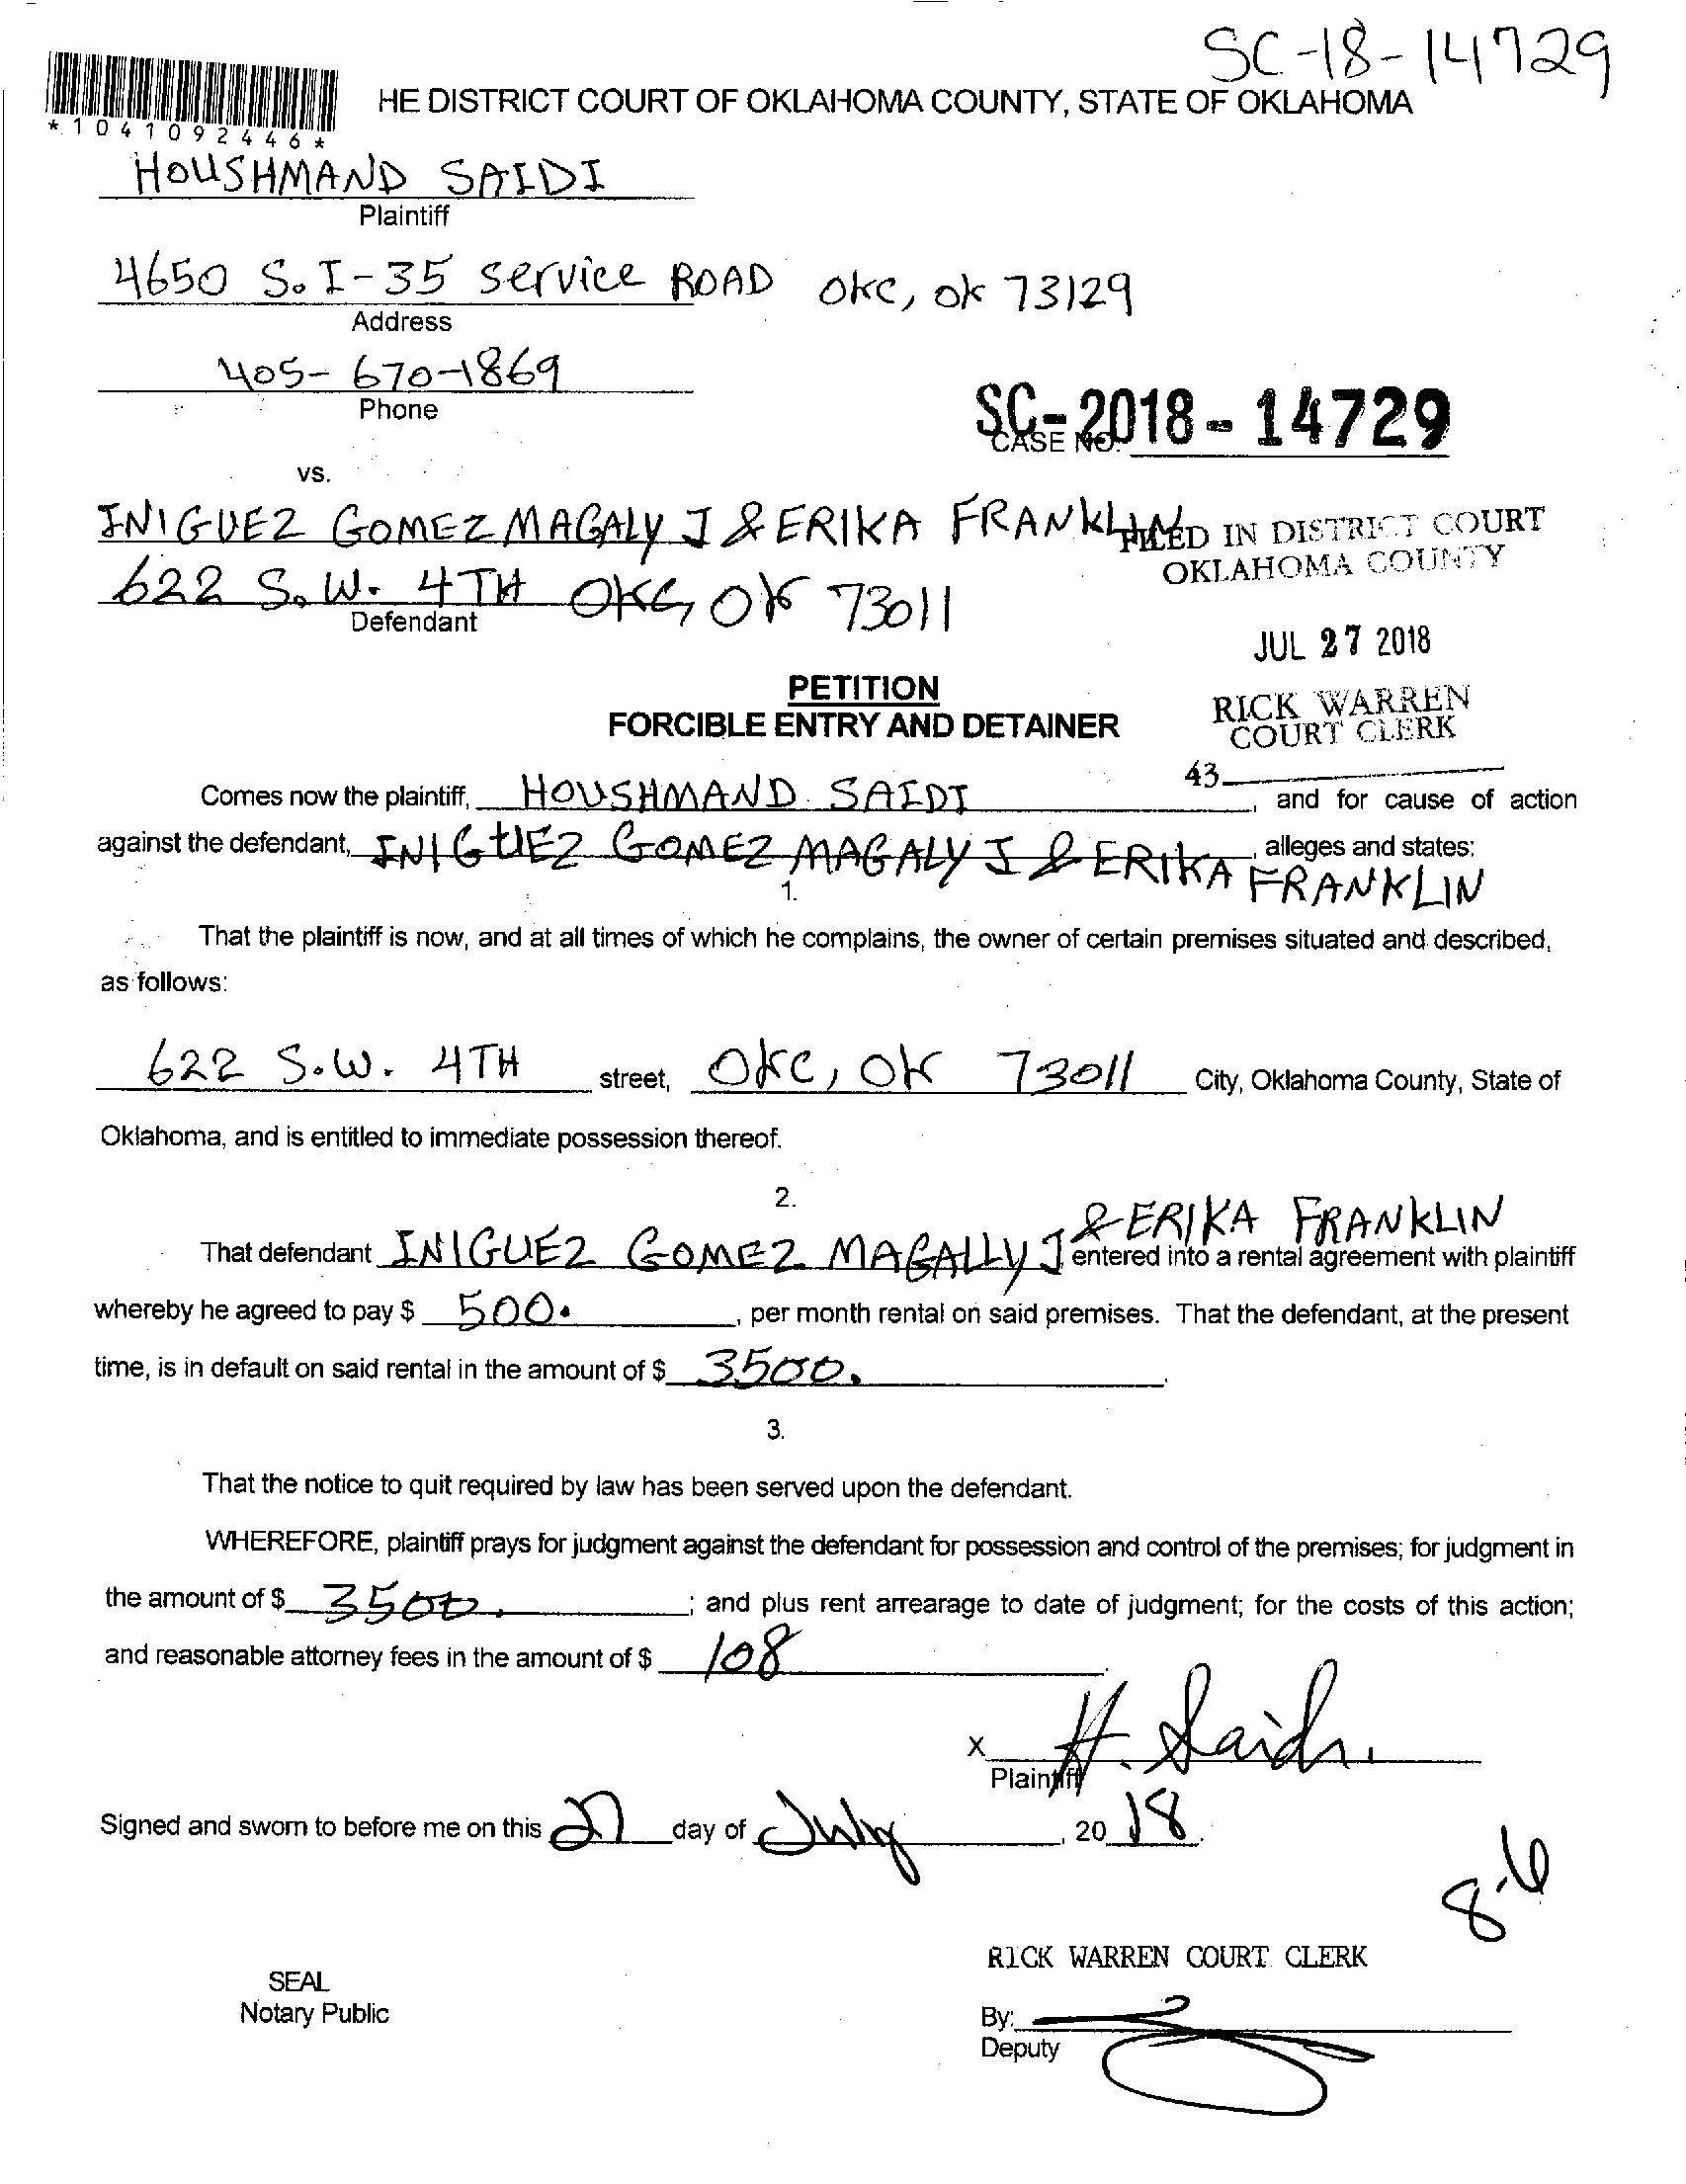 SC-18-14729
HE DISTRICT COURT OF OKLAHOMA COUNTY, STATE OF OKLAHOMA
*1041092446*
HOUSHMAND SAIDI
Plaintiff
4650 S. I-35 Service ROAD OKC, OK 73129
Address
405-670-1869
Phone
SC-2018-14729
CASE NO.
vs.
INIGUEZ GOMEZ MAGALY J & ERIKA FRANKLIN
FILED IN DISTRICT COURT
OKLAHOMA COUNTY
622 S.W. 4TH OKC, OK 73011
Defendant
JUL 27 2018
PETITION
FORCIBLE ENTRY AND DETAINER
RICK WARREN
COURT CLERK
43
Comes now the plaintiff, HOUSHMAND SAIDI, and for cause of action
against the defendant, INIGUEZ GOMEZ MAGALY J & ERIKA FRANKLIN, alleges and states:
1.
That the plaintiff is now, and at all times of which he complains, the owner of certain premises situated and described,
as follows:
622 S.W. 4TH street, OKC, OK 73011 City, Oklahoma County, State of
Oklahoma, and is entitled to immediate possession thereof.
2.
That defendant INIGUEZ GOMEZ MAGALLY J & ERIKA FRANKLIN entered into a rental agreement with plaintiff
whereby he agreed to pay $ 500., per month rental on said premises. That the defendant, at the present
time, is in default on said rental in the amount of $ 3500..
3.
That the notice to quit required by law has been served upon the defendant.
WHEREFORE, plaintiff prays for judgment against the defendant for possession and control of the premises; for judgment in
the amount of $ 3500.; and plus rent arrearage to date of judgment; for the costs of this action;
and reasonable attorney fees in the amount of $ 108.
x H. Saidi
Plaintiff
Signed and sworn to before me on this 27 day of July, 2018.
8-6
RICK WARREN COURT CLERK
SEAL
Notary Public
By:
Deputy